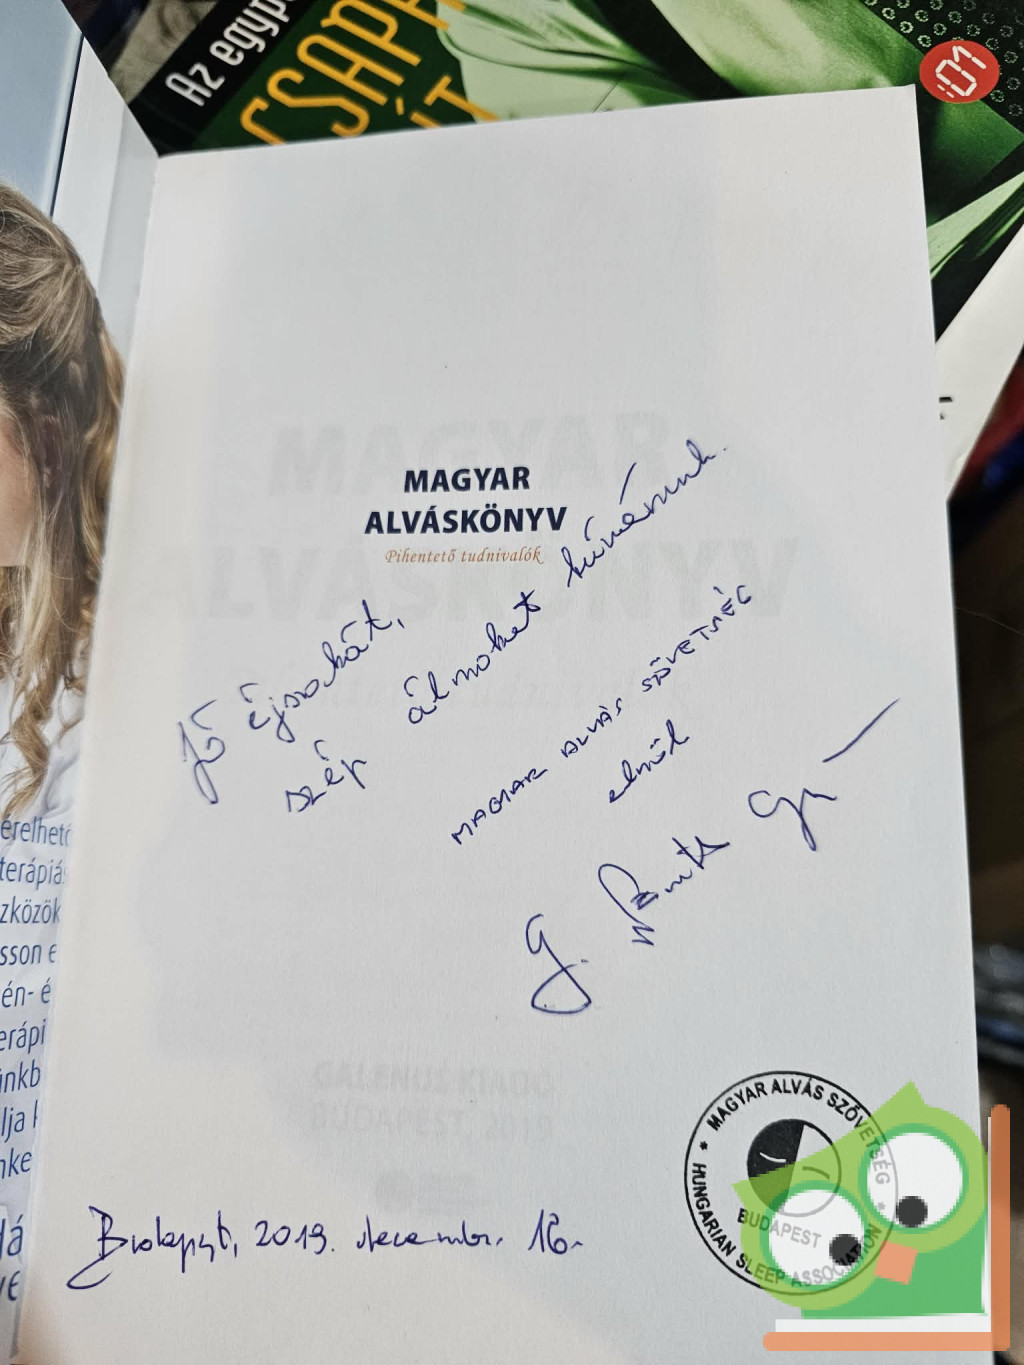 Az egyp
CSAPA
ÍT
:01
MAGYAR
ALVÁSKÖNYV
Pihentető tudnivalók
Jó éjszakát,
szép álmokat kívánunk.
MAGYAR ALVÁS SZÖVETSÉG
elnök
G. Németh Gy
Budapest, 2019. december. 16.
GALENUS KIADÓ
BUDAPEST, 2019
* MAGYAR ALVÁS SZÖVETSÉG *
HUNGARIAN SLEEP ASSOCIATION
BUDAPEST
érelhető
terápiás
zközök
sson e
én- é
erápi
inkb
lja k
nke